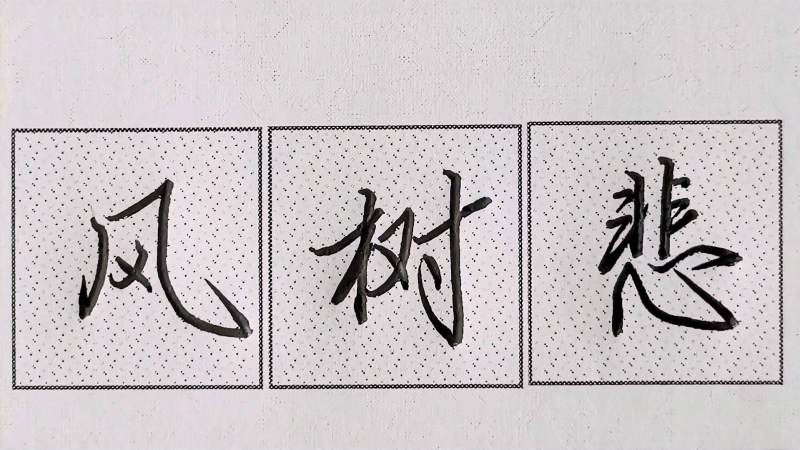 风树悲